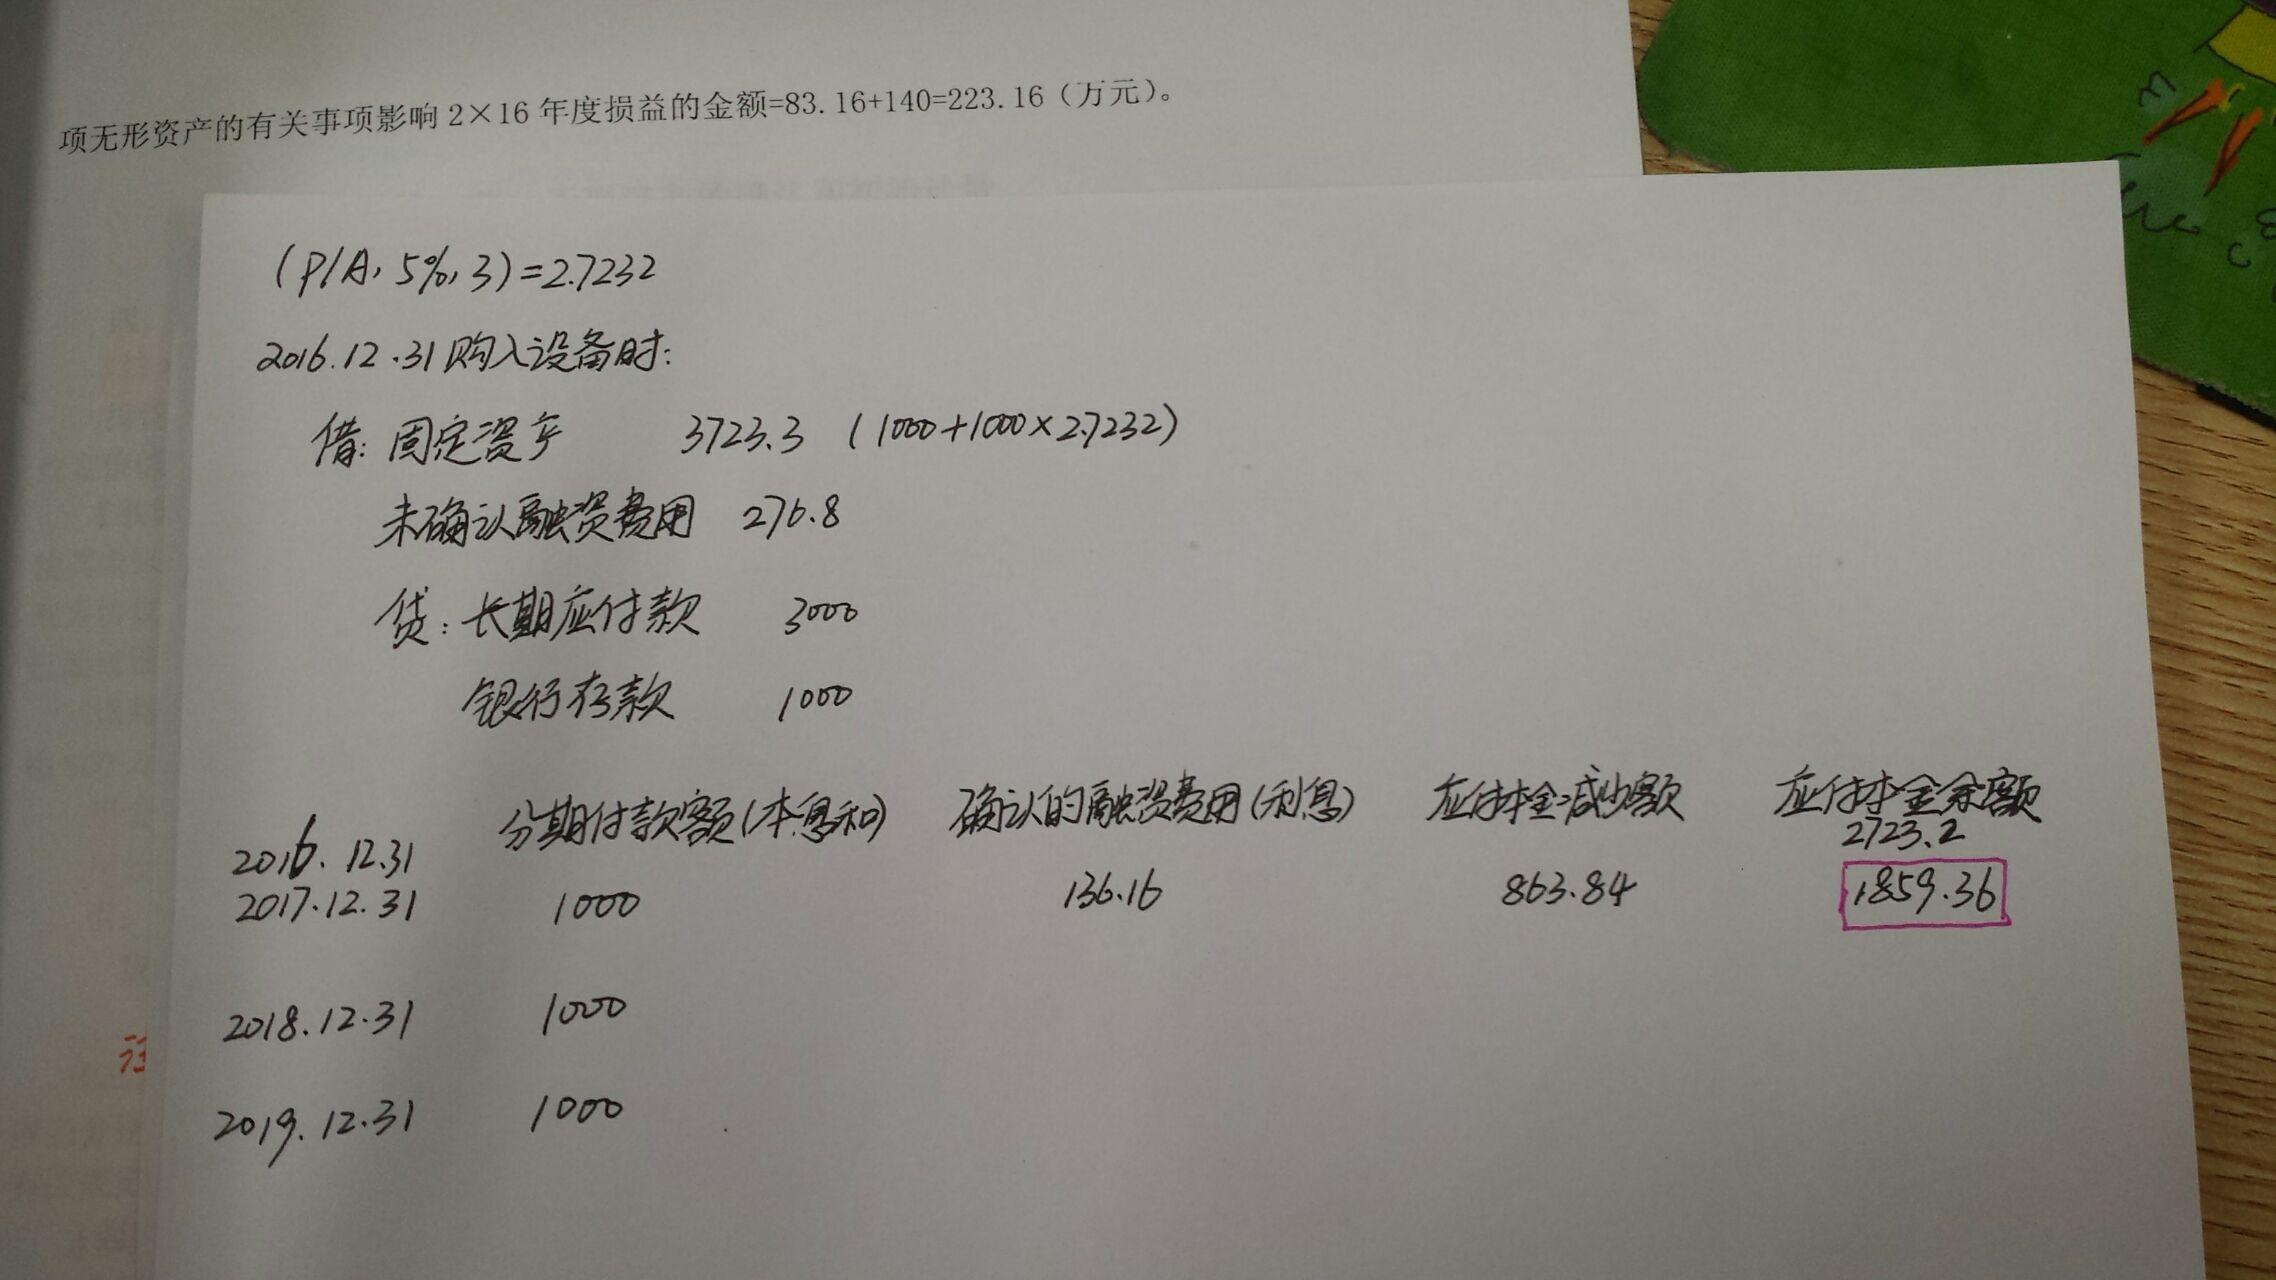 项无形资产的有关事项影响 2×16 年度损益的金额=83.16+140=223.16（万元）。
(P/A, 5%, 3)=2.7232
2016.12.31购入设备时:
借: 固定资产 3723.3 (1000+1000×2.7232)
未确认融资费用 276.8
贷: 长期应付款 3000
银行存款 1000
分期付款额(本息和) 确认的融资费用(利息) 应付本金减少额 应付本金余额
2016.12.31 2723.2
2017.12.31 1000 136.16 863.84 1859.36
2018.12.31 1000
2019.12.31 1000